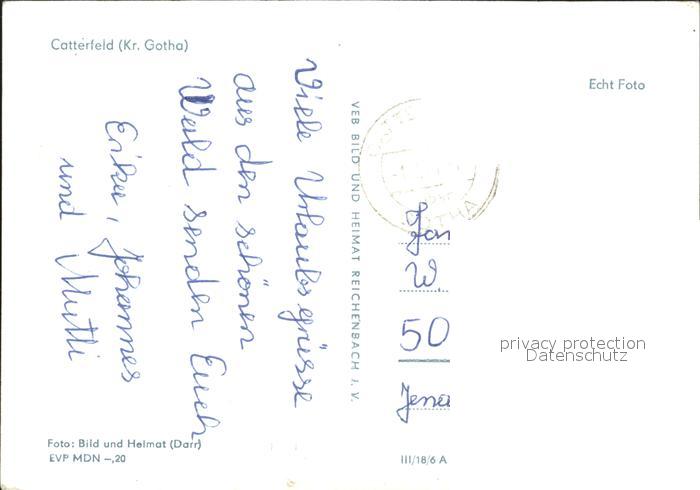 Catterfeld (Kr. Gotha)
Echt Foto
Viele Urlaubsgrüsse
aus den schönen
Wald senden Euch
Erika, Johannes
und Mutti
VEB BILD UND HEIMAT REICHENBACH I. V.
GOTHA
W.
50
privacy protection
Datenschutz
Foto: Bild und Heimat (Darr)
EVP MDN –,20
III/18/6 A